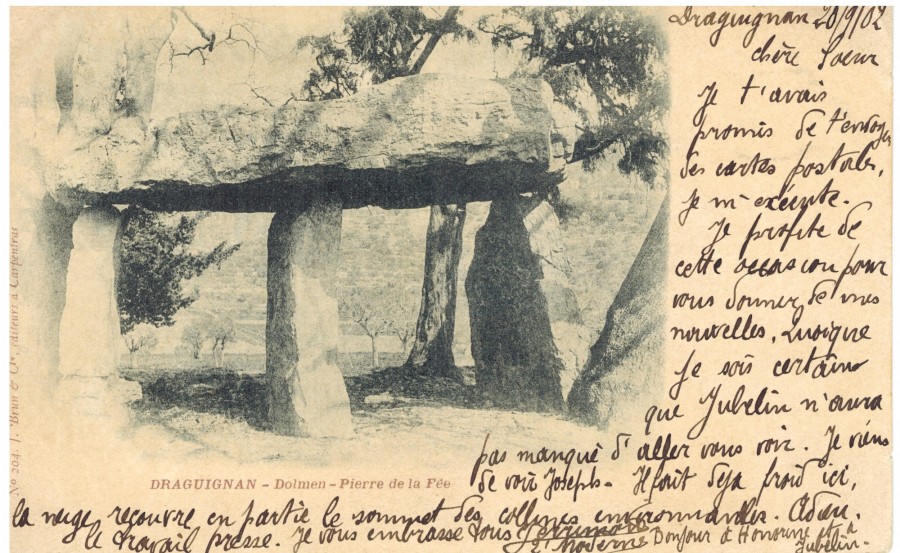 Draguignan 20/9/02
chère Soeur
Je t'avais
promis de t'envoyer
des cartes postales,
je m'exécute.
Je profite de
cette occasion pour
vous donner de mes
nouvelles, quoique
je sois certaine
que Jubelin n'aura
pas manqué d'aller vous voir. Je viens
de voir Joseph - Il fait déja froid ici,
la neige recouvre en partie le sommet des collines environnantes. Adieu.
le travail presse. Je vous embrasse tous
Bonjour à Honorine et à
Jubelin -
DRAGUIGNAN - Dolmen - Pierre de la Fée
No 204. J. Brun & Cie, éditeurs à Carpentras